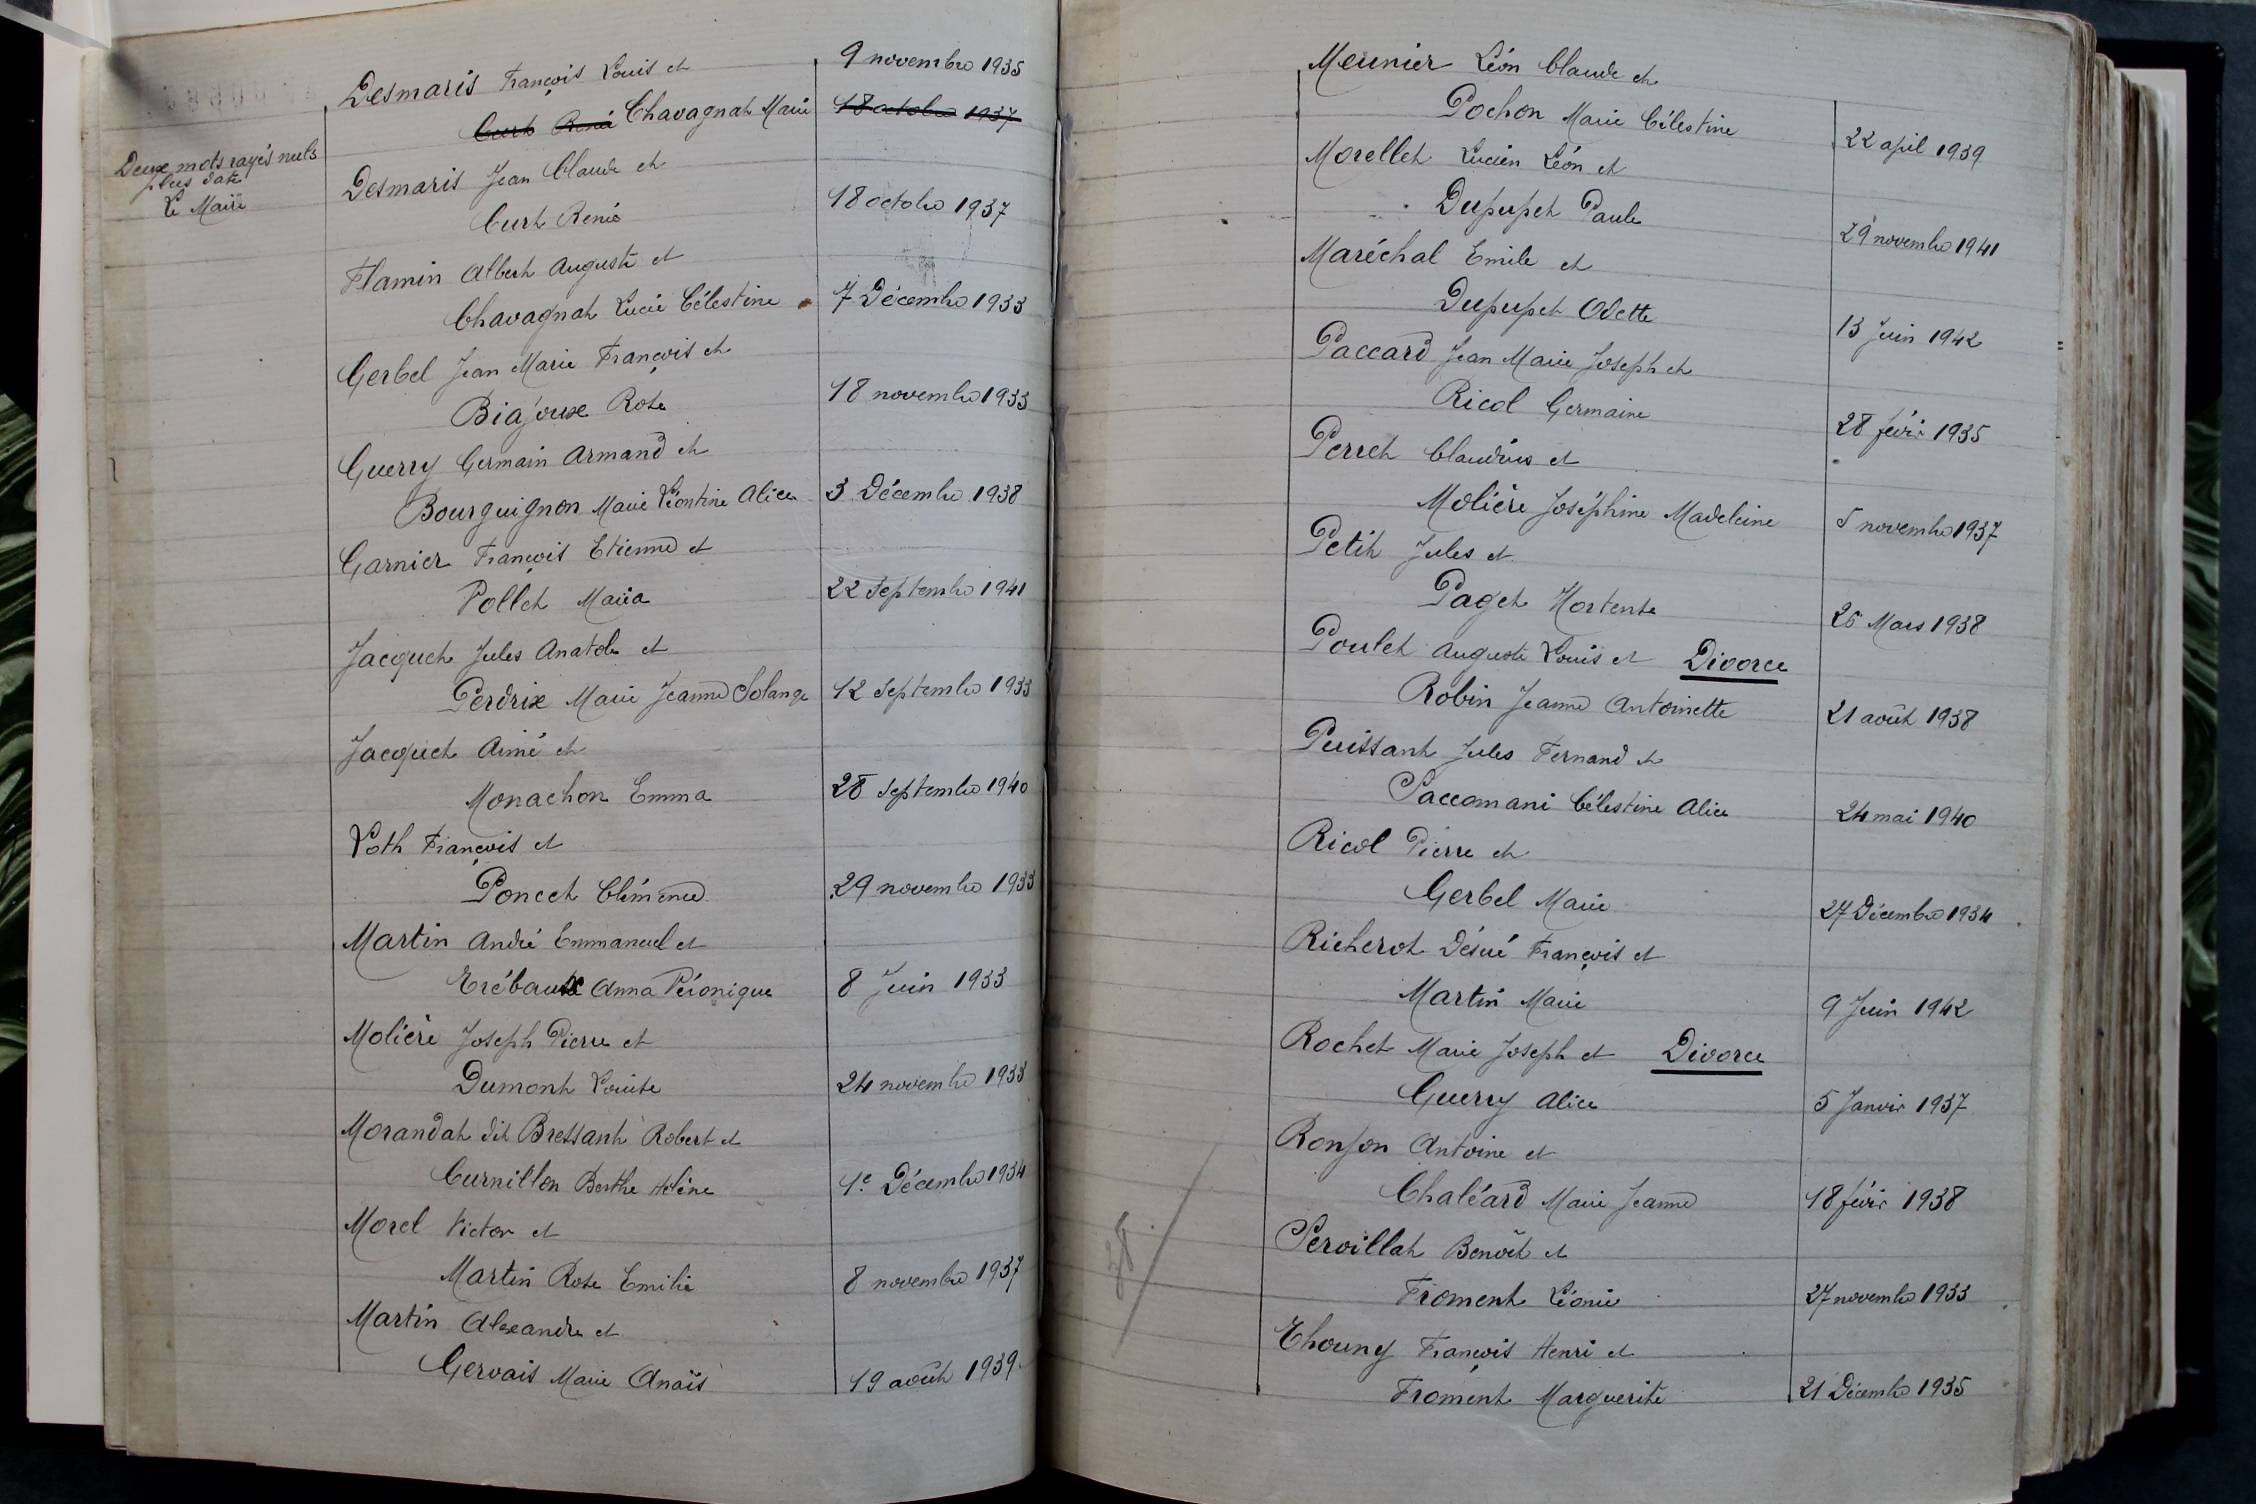 Desmaris François Louis et 9 novembre 1935
Curt René Chavagnat Marie 18 octobre 1937
Deux mots rayés nuls
plus date
Le Maire
Desmaris Jean Claude et
Curt Renée 18 octobre 1937
Flamin Albert Auguste et
Chavagnat Lucie Célestine 7 Décembre 1933
Gerbel Jean Marie François et
Biajoux Rose 18 novembre 1933
Guerry Germain Armand et
Bourguignon Marie Léontine Alice 3 Décembre 1938
Garnier François Etienne et
Pollet Maria 22 Septembre 1941
Jacquet Jules Anatole et
Perdrix Marie Jeanne Solange 12 Septembre 1933
Jacquet Aimé et
Monachon Emma 28 Septembre 1940
Loth François et
Poncet Clémence 29 novembre 1933
Martin André Emmanuel et
Trébaux Anna Véronique 8 Juin 1933
Molière Joseph Pierre et
Dumont Louise 24 novembre 1933
Morandat dit Bressant Robert et
Curnillon Berthe Hélène 1e Décembre 1934
Morel Victor et
Martin Rose Emilie 8 novembre 1937
Martin Alexandre et
Gervais Marie Anaïs 19 août 1939
Meunier Léon Claude et
Pochon Marie Célestine 22 april 1939
Morellet Lucien Léon et
Dupupet Paule 29 novembre 1941
Maréchal Emile et
Dupupet Odette 13 Juin 1942
Paccard Jean Marie Joseph et
Ricol Germaine 28 févir 1935
Perret Claudius et
Molière Joséphine Madeleine 5 novembre 1937
Petit Jules et
Paget Hortense 26 Mars 1938
Poulet Auguste Louis et Divorce
Robin Jeanne Antoinette 21 août 1938
Puissant Jules Fernand et
Saccomani Célestine Alice 24 mai 1940
Ricol Pierre et
Gerbel Marie 27 Décembre 1934
Richerot Désiré François et
Martin Marie 9 Juin 1942
Rochet Marie Joseph et Divorce
Guerry Alice 5 Janvir 1937
Ronjon Antoine et
Chaléard Marie Jeanne 18 févir 1938
Servillat Benoît et
Froment Léonie 27 novembre 1933
Thouny François Henri et
Froment Marguerite 21 Décembre 1935